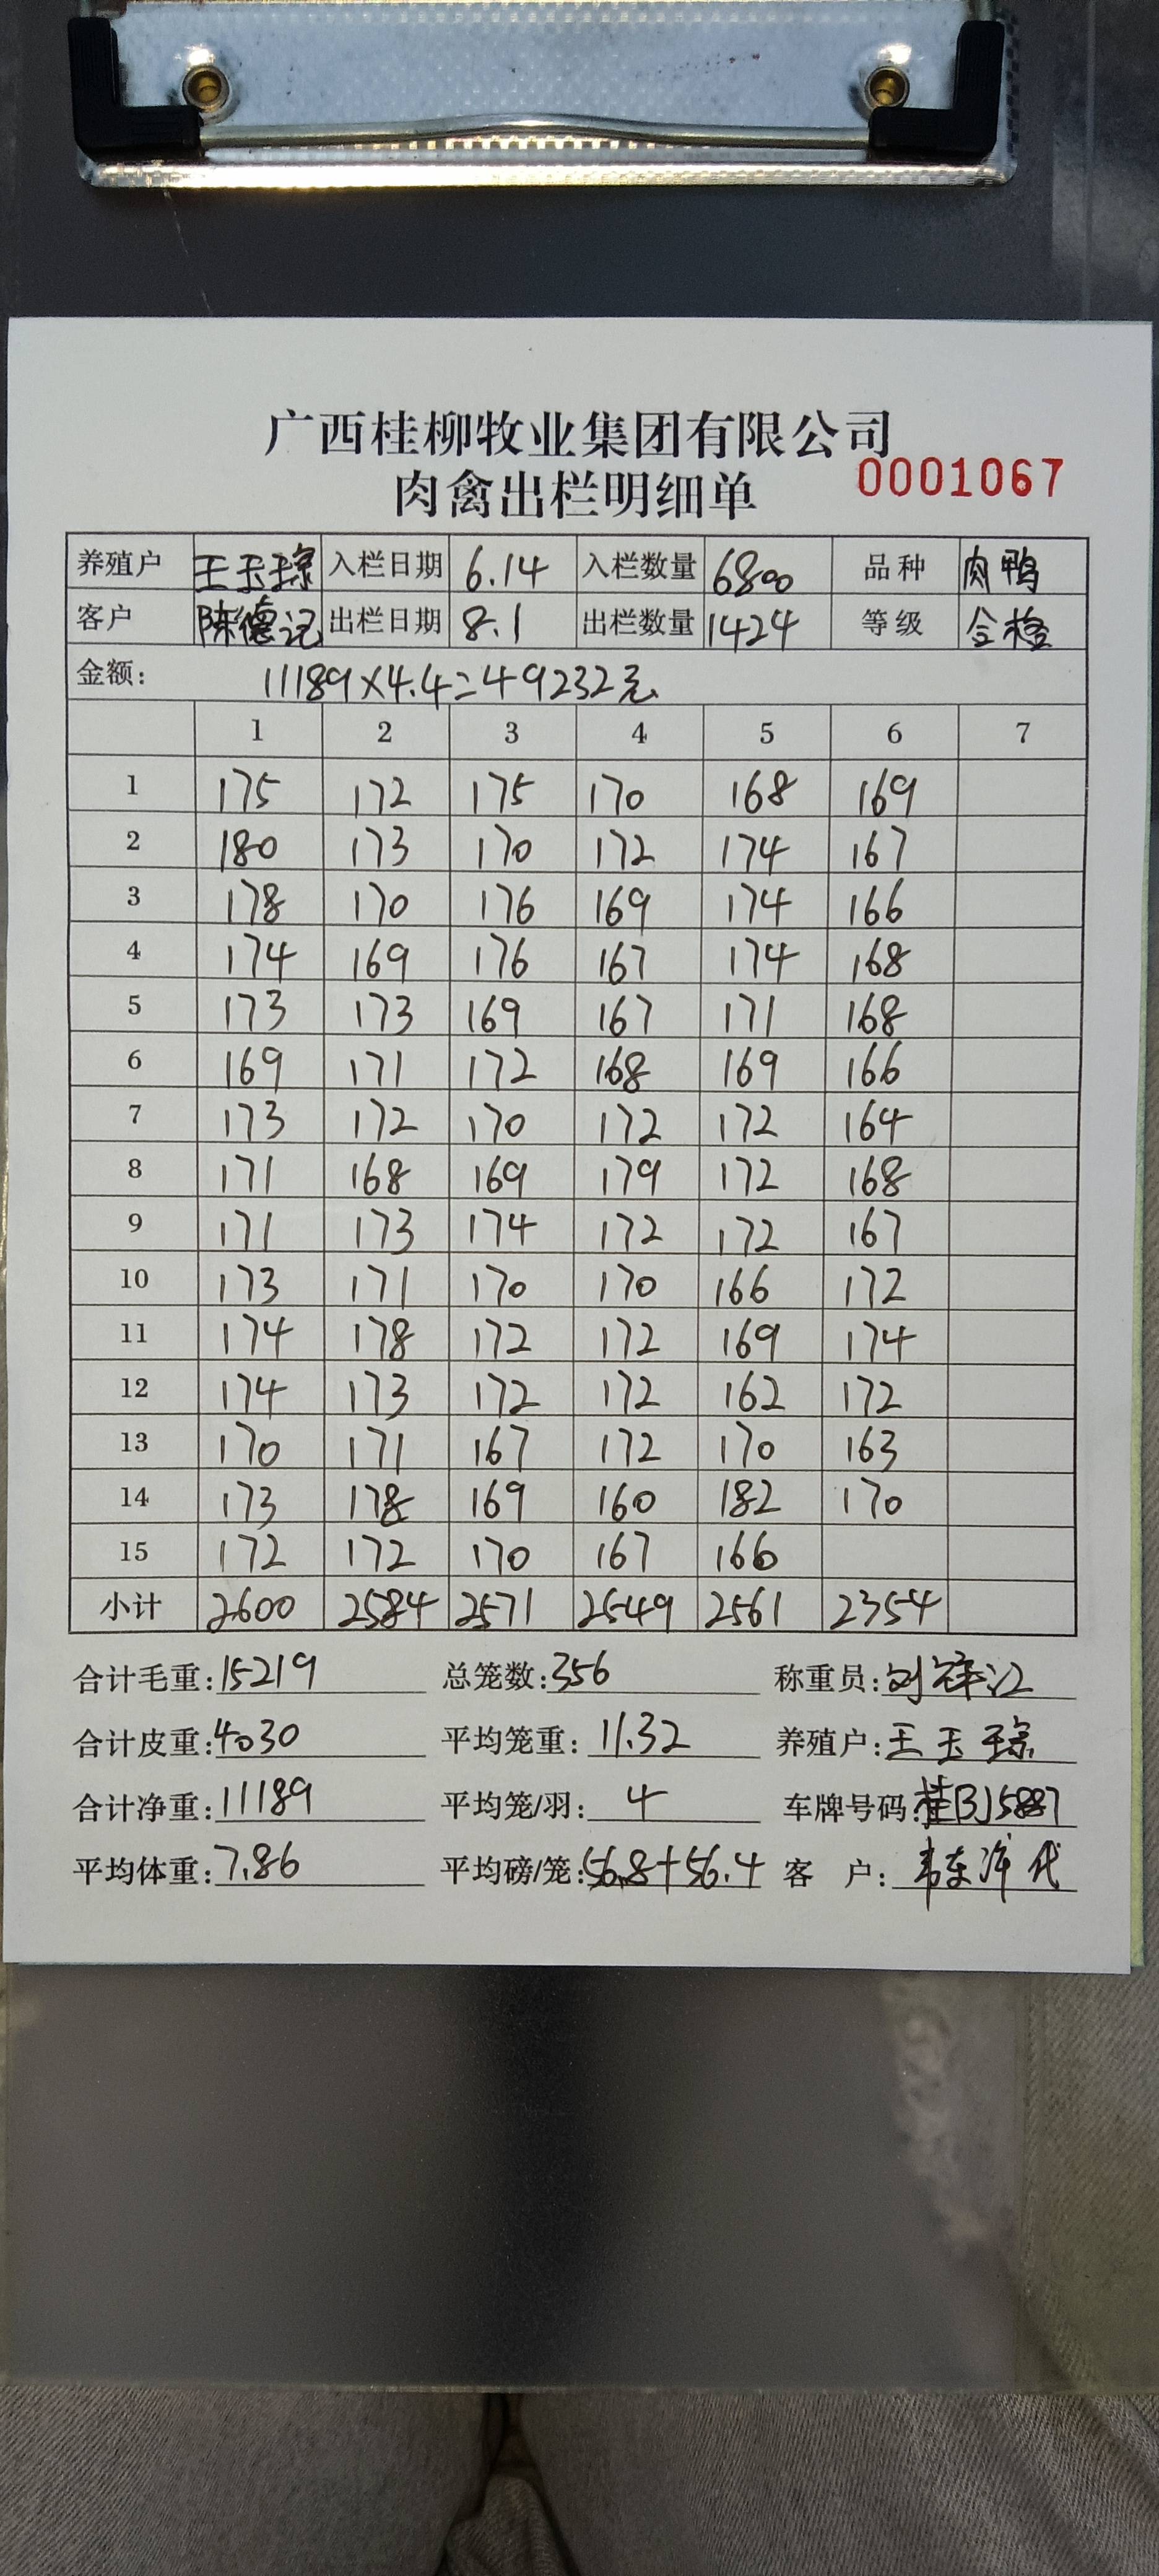 广西桂柳牧业集团有限公司
肉禽出栏明细单 0001067
养殖户 王玉琼 入栏日期 6.14 入栏数量 6800 品种 肉鸭
客户 陈德记 出栏日期 8.1 出栏数量 1424 等级 合格
金额: 11189×4.4=49232元
1 2 3 4 5 6 7
1 175 172 175 170 168 169
2 180 173 170 172 174 167
3 178 170 176 169 174 166
4 174 169 176 167 174 168
5 173 173 169 167 171 168
6 169 171 172 168 169 166
7 173 172 170 172 172 164
8 171 168 169 179 172 168
9 171 173 174 172 172 167
10 173 171 170 170 166 172
11 174 178 172 172 169 174
12 174 173 172 172 162 172
13 170 171 167 172 170 163
14 173 178 169 160 182 170
15 172 172 170 167 166
小计 2600 2584 2571 2549 2561 2354
合计毛重:15219 总笼数:356 称重员:刘祥江
合计皮重:4030 平均笼重: 11.32 养殖户:王玉琼
合计净重:11189 平均笼/羽: 4 车牌号码:桂BJ5887
平均体重:7.86 平均磅/笼:56.8+56.4 客 户: 代